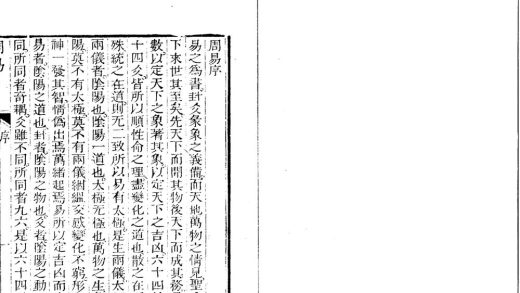 周易序
易之爲書卦爻彖象之義備而天地萬物之情見聖
下來世其至矣先天下而開其物後天下而成其務
數以定天下之象著其象以定天下之吉凶六十四
十四爻皆所以順性命之理盡變化之道也散之在
殊統之在道則无二致所以易有太極是生兩儀太
兩儀者陰陽也陰陽一道也太極无極也萬物之生
陽莫不有太極莫不有兩儀絪縕交感變化不窮形
神一發其智情僞出焉萬緒起焉易所以定吉凶而
易者陰陽之道也卦者陰陽之物也爻者陰陽之動
同所同者奇耦爻雖不同所同者九六是以六十四
周易
序